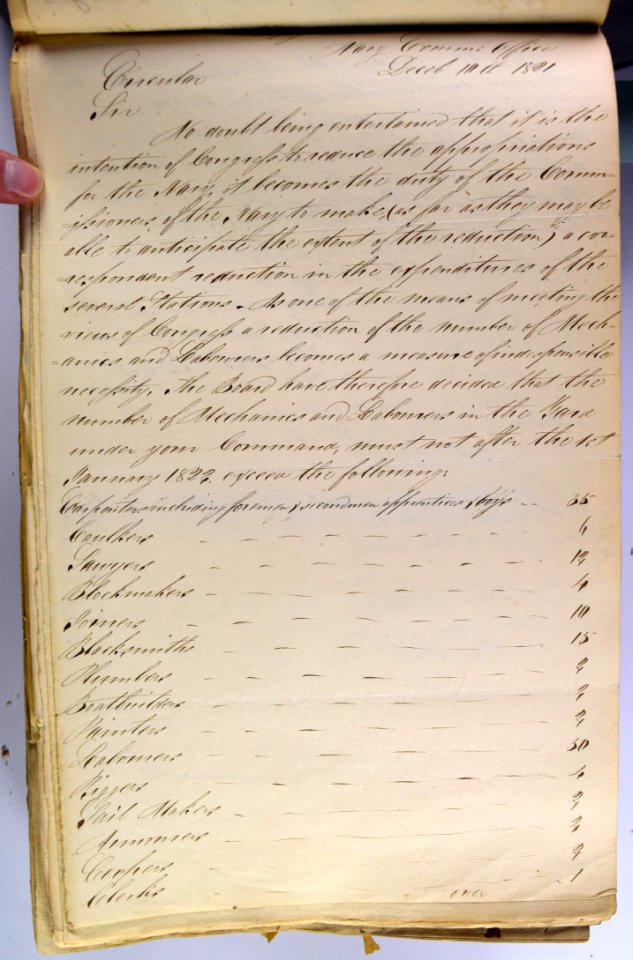 Navy Comms. Office
Deceb 10th 1821
Circular
Sir
No doubt being entertained that it is the
intention of Congress to reduce the appropriations
for the Navy, it becomes the duty of the Comm-
=issioners of the Navy to make, (as far as they may be
able to anticipate the extent of the reduction) a cor-
=respondent reduction in the expenditures of the
several Stations. As one of the means of meeting the
views of Congress a reduction of the number of Mech-
=anics and Labourers becomes a measure of indispensible
necessity. The Board have therefore decided that the
number of Mechanics and Labourers in the Yard
under your Command, must not after the 1st
January 1822, exceed the following:
Carpenters including foreman & secondmen apprentices & boys -- 35
Caulkers - - - - - - - - 6
Sawyers - - - - - - - - 12
Blockmakers - - - - - - - 4
Joiners - - - - - - - 10
Blacksmiths - - - - - - 15
Plumbers - - - - - - 2
Boatbuilders - - - - - - 2
Painters - - - - - - 2
Labourers - - - - - - 30
Riggers - - - - - - 4
Sail Makers - - - - - - 2
Armourers - - - - - - 2
Coopers - - - - - - 2
Clerks - - - - - - 1
over